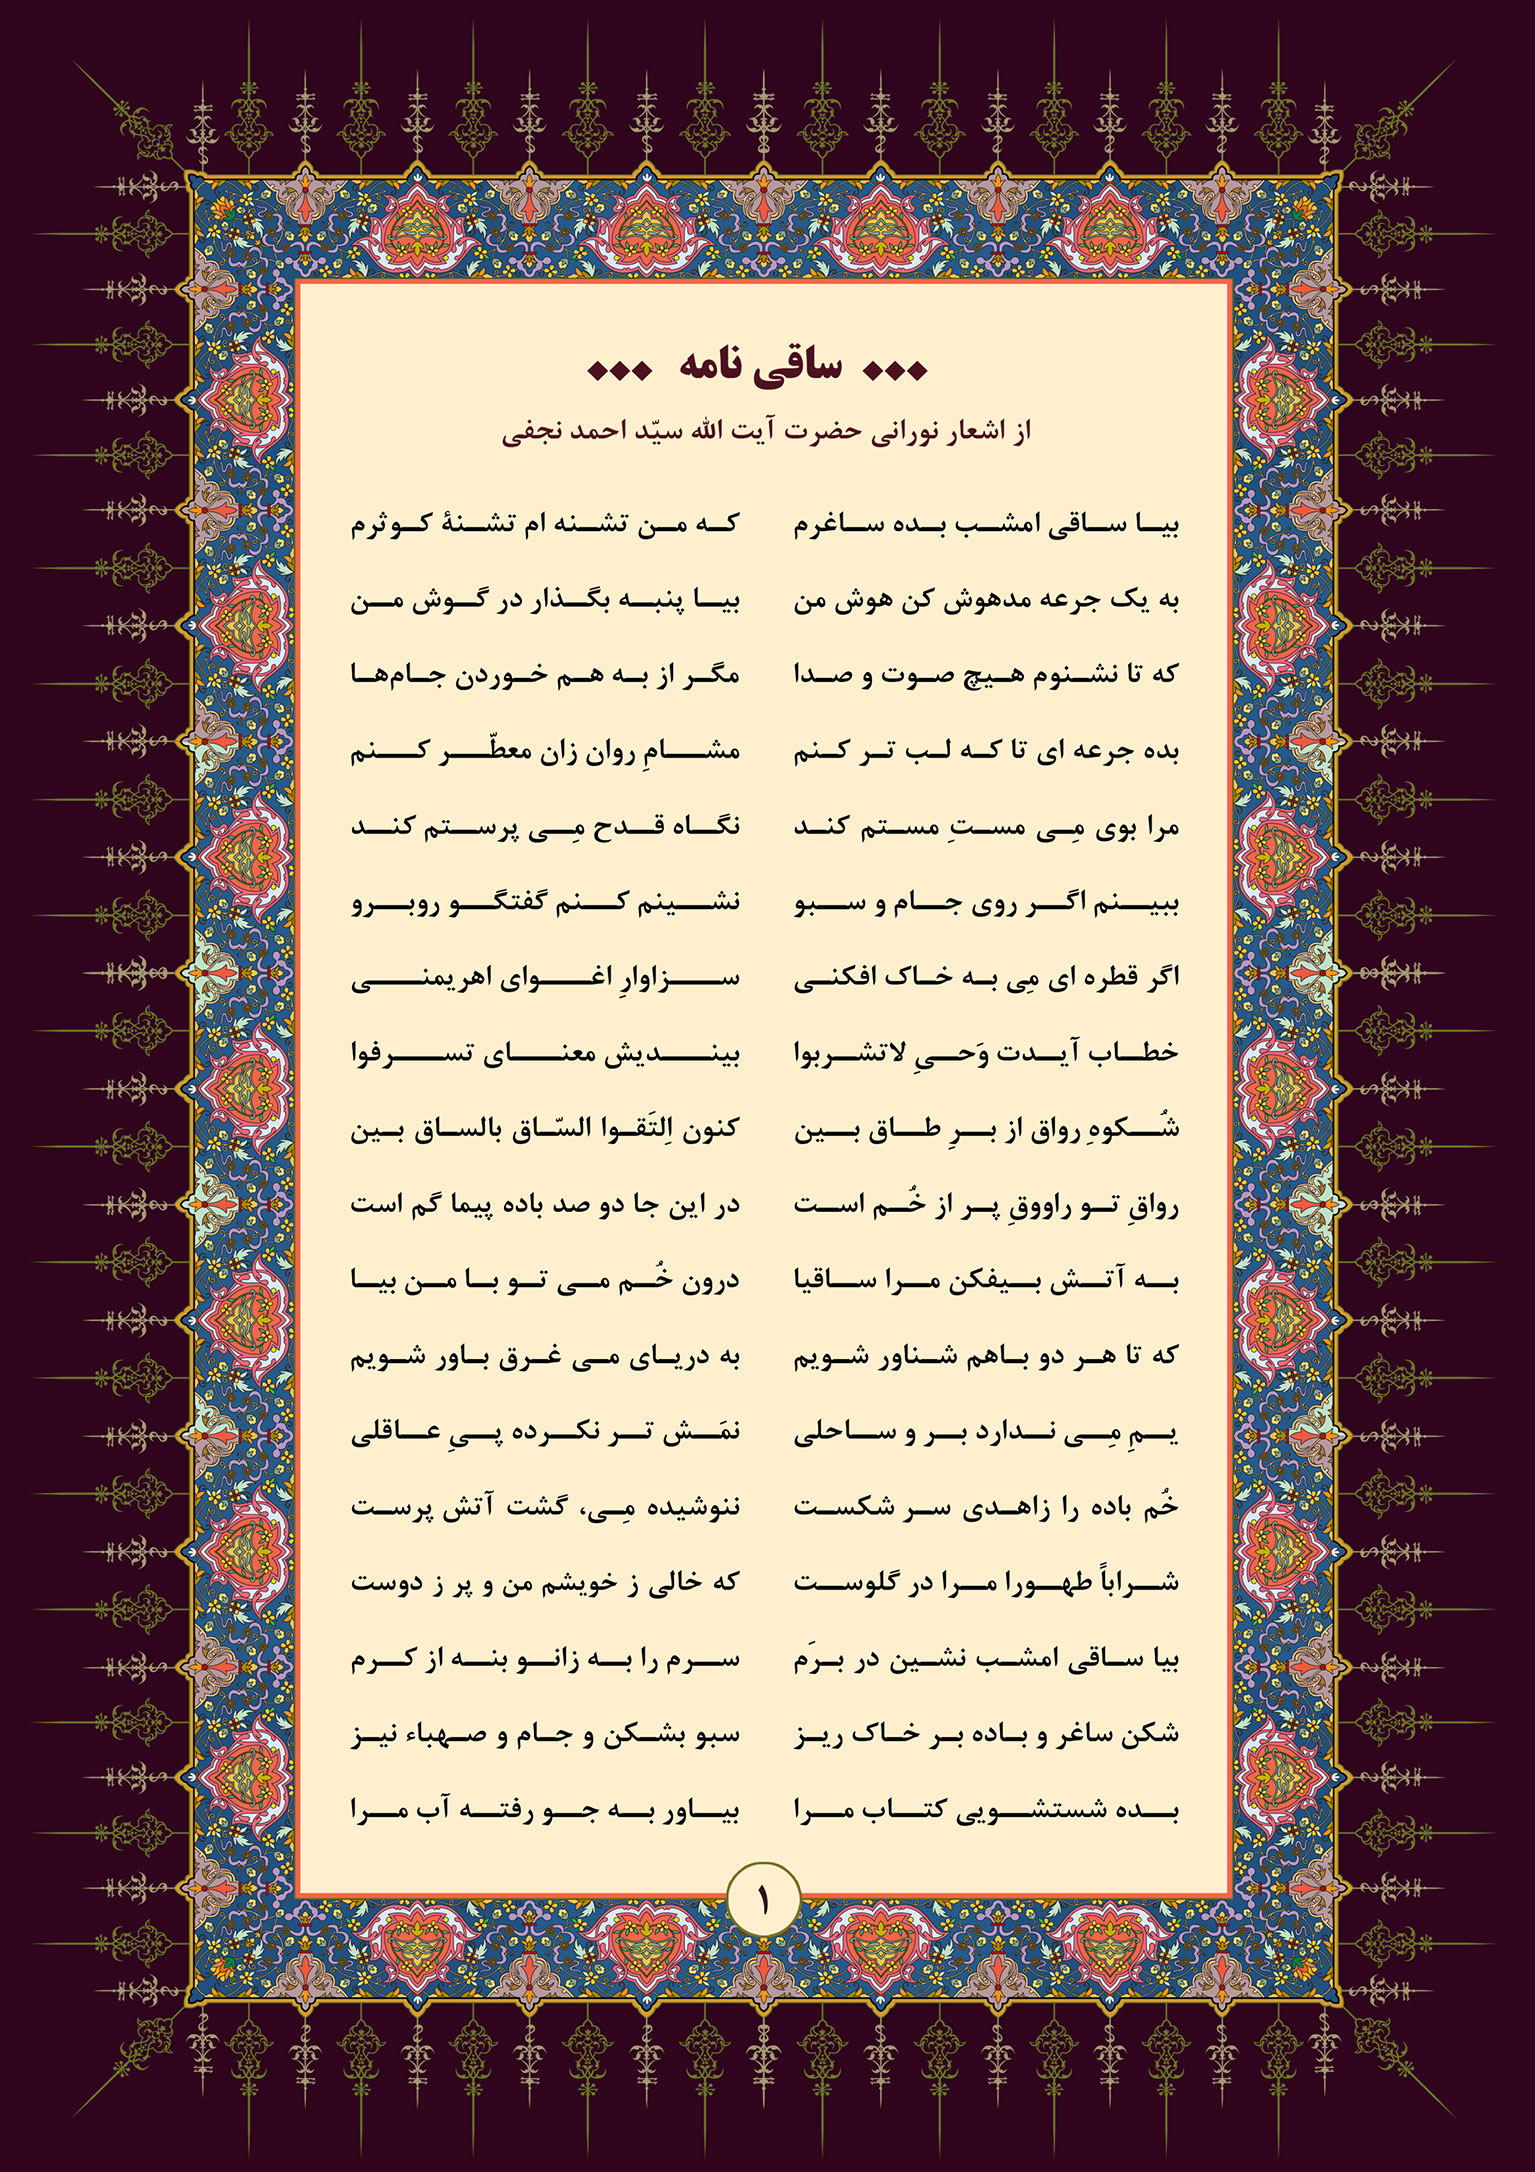 ساقی نامه
از اشعار نورانی حضرت آیت الله سیّد احمد نجفی
بیا ساقی امشب بده ساغرم که من تشنه ام تشنۀ کوثرم
به یک جرعه مدهوش کن هوش من بیا پنبه بگذار در گوش من
که تا نشنوم هیچ صوت و صدا مگر از به هم خوردن جام‌ها
بده جرعه ای تا که لب تر کنم مشامِ روان زان معطّر کنم
مرا بوی مِی مستِ مستم کند نگاه قدح مِی پرستم کند
ببینم اگر روی جام و سبو نشینم کنم گفتگو روبرو
اگر قطره ای مِی به خاک افکنی سزاوارِ اغوای اهریمنی
خطاب آیدت وَحیِ لاتشربوا بیندیش معنای تسرفوا
شُکوهِ رواق از برِ طاق بین کنون اِلتَقوا السّاق بالساق بین
رواقِ تو راووقِ پر از خُم است در این جا دو صد باده پیما گم است
به آتش بیفکن مرا ساقیا درون خُم می تو با من بیا
که تا هر دو باهم شناور شویم به دریای می غرق باور شویم
یمِ مِی ندارد بر و ساحلی نمَش تر نکرده پیِ عاقلی
خُم باده را زاهدی سر شکست ننوشیده مِی، گشت آتش پرست
شراباً طهورا مرا در گلوست که خالی ز خویشم من و پر ز دوست
بیا ساقی امشب نشین در برَم سرم را به زانو بنه از کرم
شکن ساغر و باده بر خاک ریز سبو بشکن و جام و صهباء نیز
بده شستشویی کتاب مرا بیاور به جو رفته آب مرا
۱